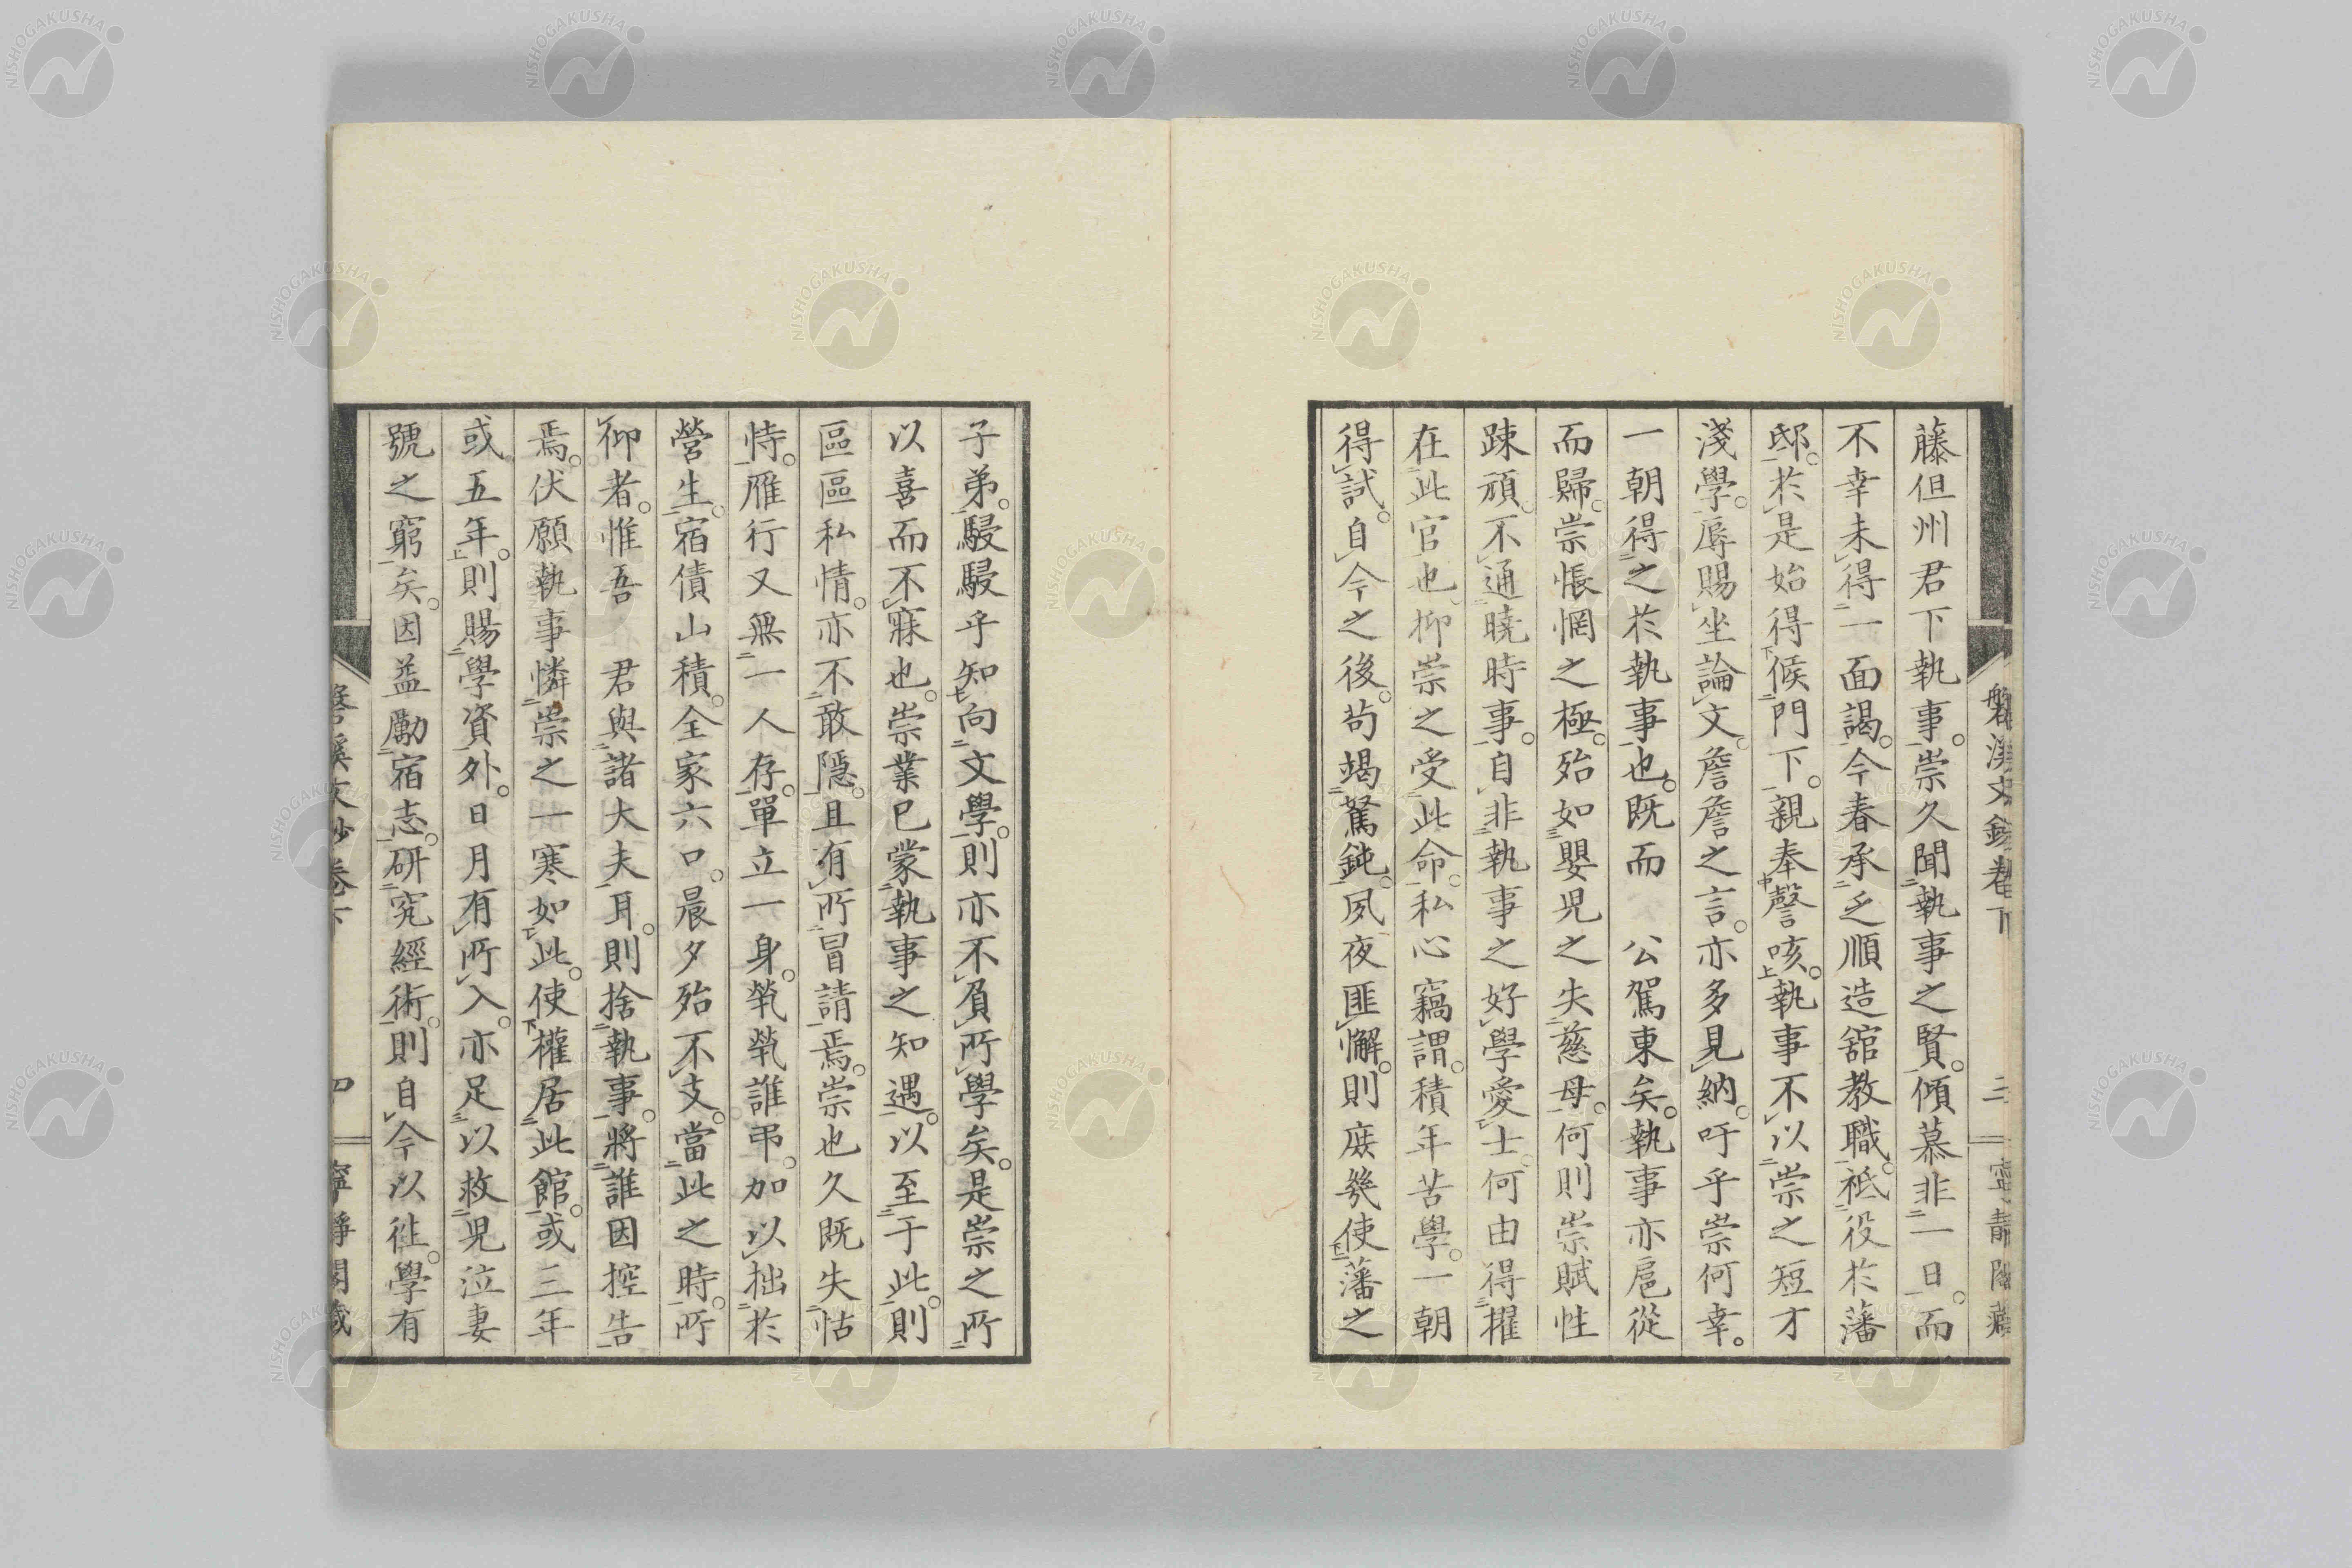 藤但州君下執事。崇久聞執事之賢。傾慕非一日。而
不幸未得一面謁。今春承乏順造舘教職。祗役於藩
邸。於是始得候門下。親奉謦咳。執事不以崇之短才
淺學。辱賜坐論文。詹詹之言。亦多見納。吁乎崇何幸。
一朝得之於執事也。既而　公駕東矣。執事亦扈從
而歸。崇悵惘之極。殆如嬰児之失慈母。何則崇賦性
踈頑。不通曉時事。自非執事之好學愛士。何由得擢
在此官也。抑崇之受此命。私心竊謂。積年苦學。一朝
得試。自今之後。苟竭駑鈍。夙夜匪懈。則庶幾使藩之
子弟。駸駸乎知向文學。則亦不負所學矣。是崇之所
以喜而不寐也。崇業已蒙執事之知遇。以至于此。則
區區私情。亦不敢隱。且有所冒請焉。崇也久既失怙
恃。雁行又無一人存。單立一身。煢煢誰弔。加以拙於
營生。宿債山積。全家六口。晨夕殆不支。當此之時。所
仰者。惟吾　君與諸大夫耳。則捨執事。將誰因控告
焉。伏願執事憐崇之一寒如此。使權居此館。或三年
或五年。則賜學資外。日月有所入。亦足以救児泣妻
號之窮矣。因益勵宿志。研究經術。則自今以徃。學有
磐渓文鈔卷下
三
寧靜閣藏
磐溪文鈔卷下
四
寧靜閣藏
NISHOGAKUSHA